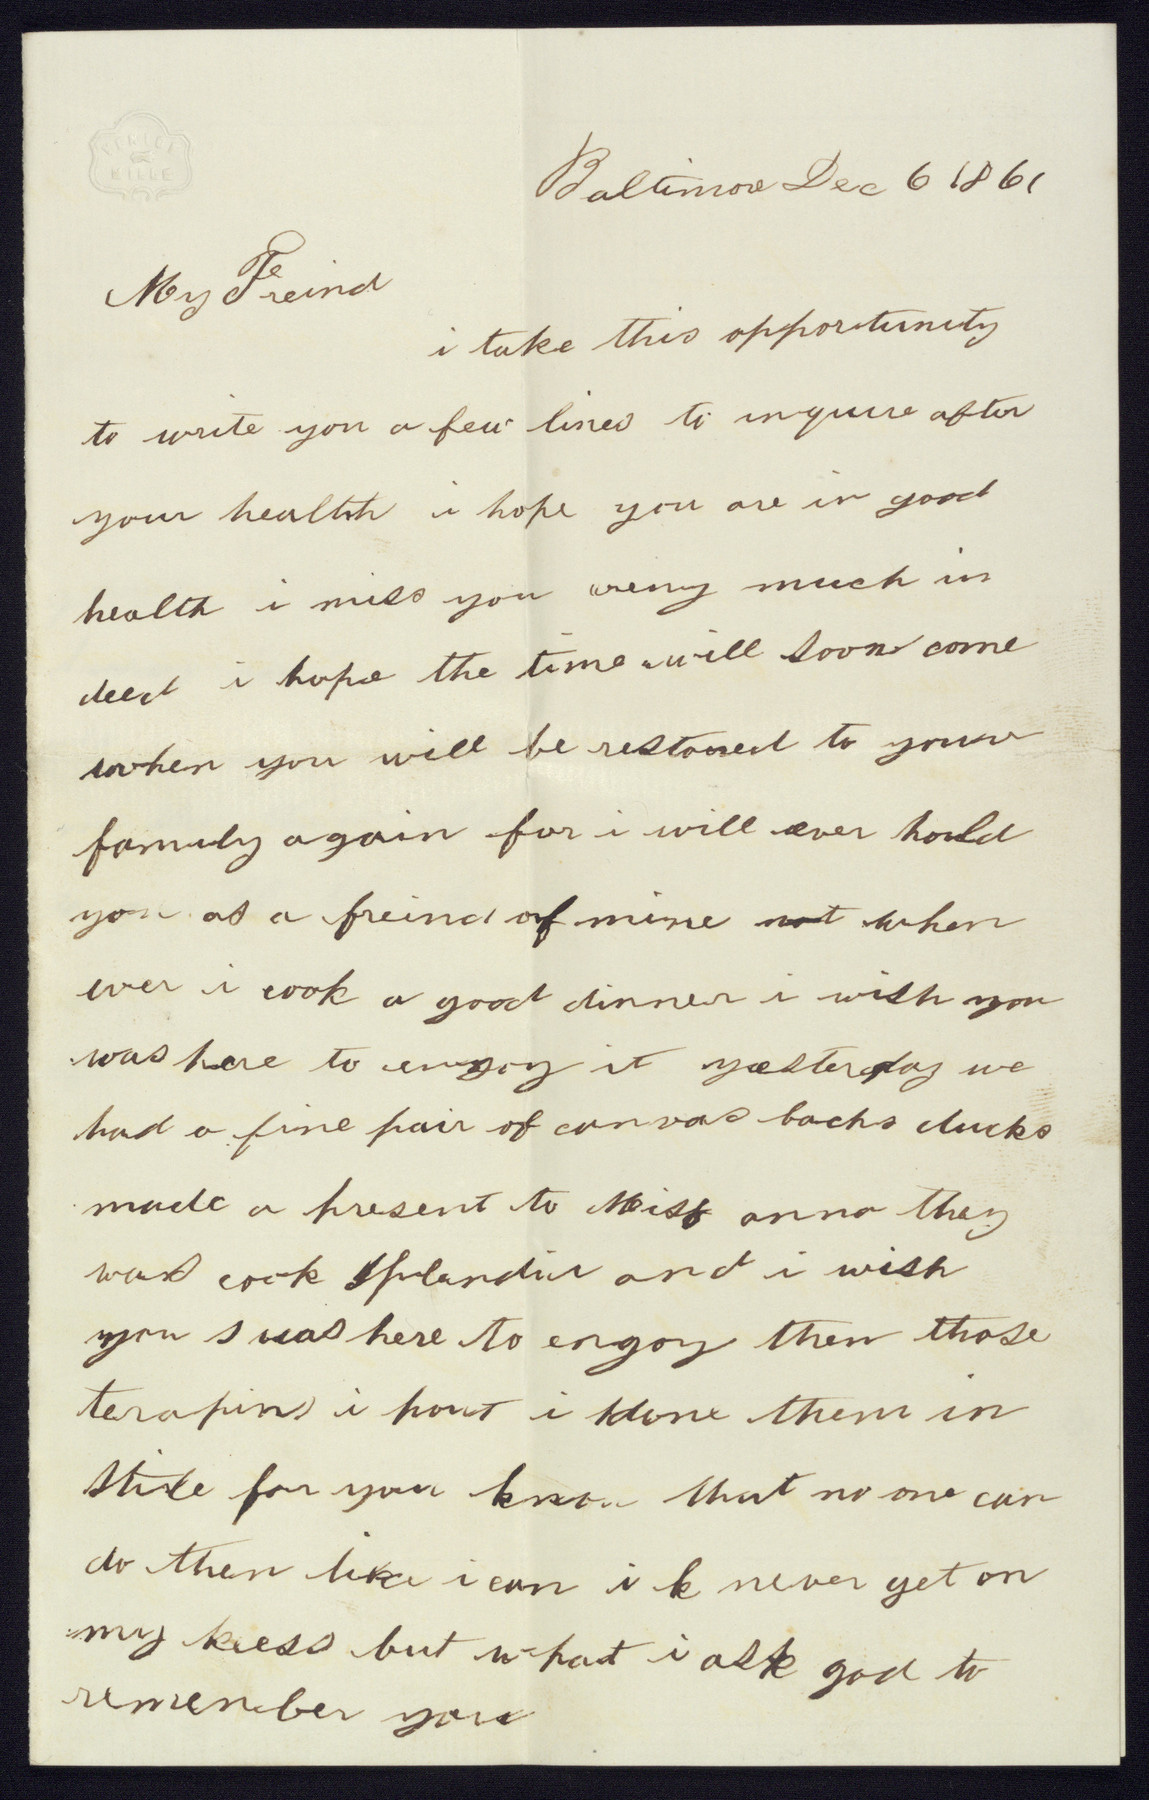 Baltimore Dec 6 1861
My Freind
i take this opportunity
to write you a few lines to inquire after
your healthh i hope you are in good
health i miss you veny much in
deed i hope the time will soon come
when you will be restored to your
famuly again for i will ever hould
you as a freind of mine not when
ever i cook a good dinner i wish you
was here to enjoy it yesterday we
had a fine pair of canvas backs ducks
made a present to Miss anna they
was cook splandid and i wish
you was here to engoy then those
terapins i hout i done them in
stile for you know that no one can
do then like i can i k never get on
my kness but what i ask god to
remember you